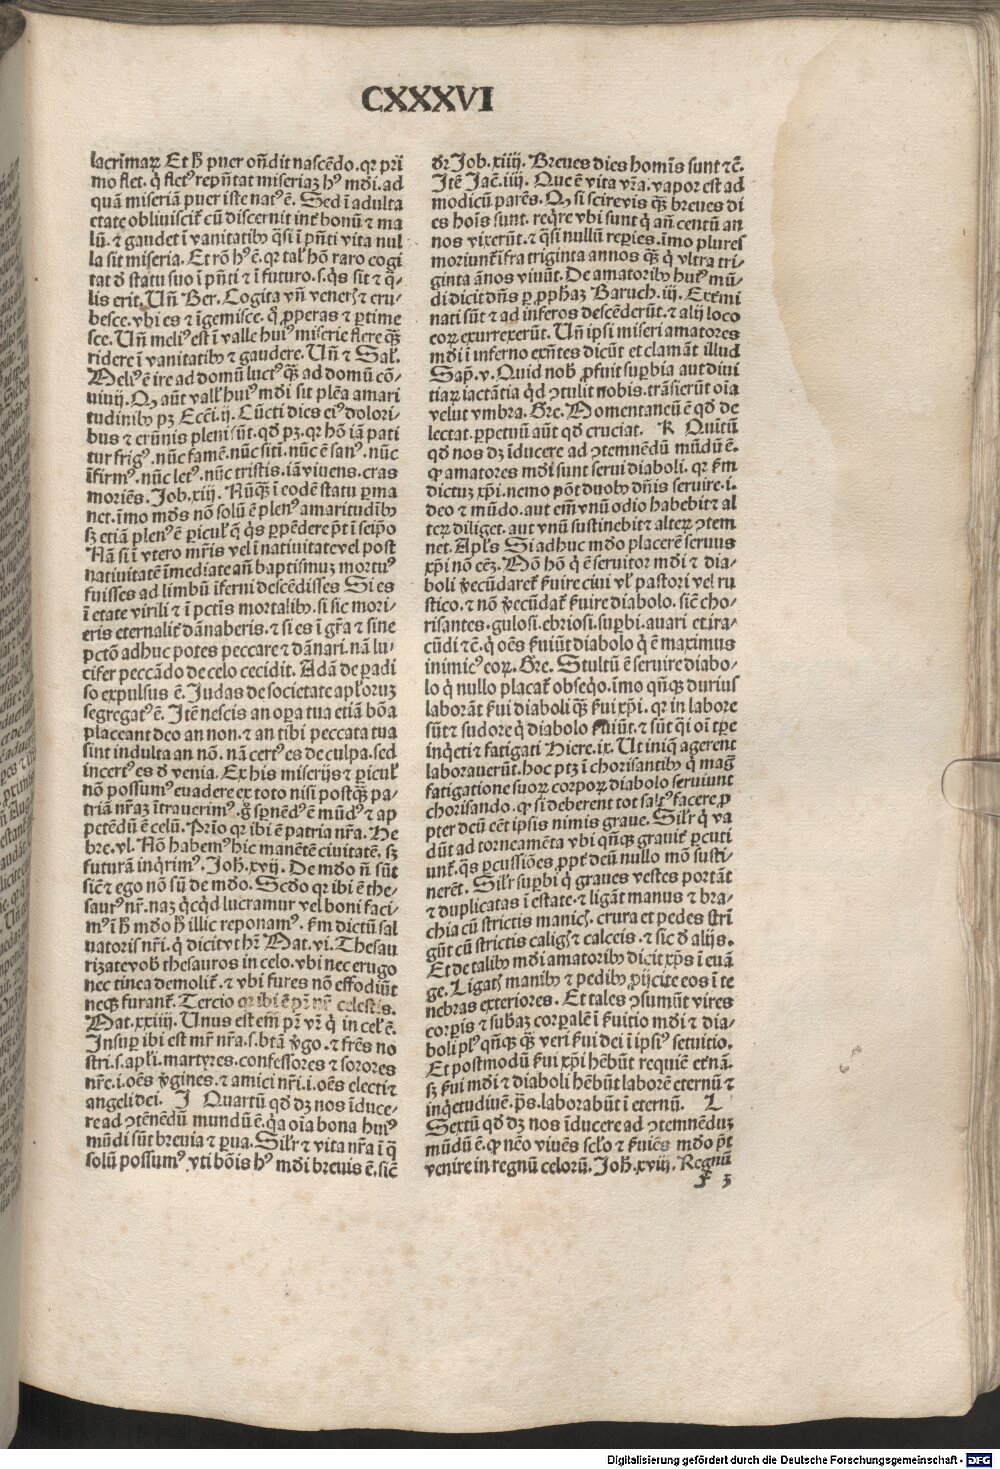 CXXXVI
lacrimaꝝ Et ħ puer oñdit nascēdo. qꝛ pri
mo flet. q̇ fletꝰ repñtat miseriaꝫ hꝰ mōi. ad
quā miseriā puer iste natꝰ ē. Sed ī adulta
etate obliuiscit̃ cū discernit int̃ bonū ⁊ ma
lū. ⁊ gaudet ī vanitatibꝰ q̄si ī pñti vita nul
la sit miseria. Et rō hꝰ ē. qꝛ tal̓ hō raro cogi
tat đ statu suo ī pñti ⁊ ī futuro. s. q̇s sit ⁊ q̄-
lis erit. Uñ Ber. Cogita vñ veneris ⁊ eru-
besce. vbi es ⁊ īgemisce. q̊ ꝓperas ⁊ ꝑtime
sce. Uñ meliꝰ est ī valle huiꝰ miserie flere qꝫ̄
ridere ī vanitatibꝰ ⁊ gaudere. Uñ ⁊ Sal̓.
Meliꝰ ē ire ad domū luctꝰ qꝫ̄ ad domū cō-
uiuij. Qꝫ aūt vall̓ huiꝰ mōi sit plēa amari
tudinibꝰ pꝫ Ecci. ij. Cūcti dies eiꝰ dolori-
bus ⁊ erūnis pleni sūt. qđ pꝫ. qꝛ hō iā pati
tur frigꝰ. nūc famē. nūc sitī. nūc ē sanꝰ. nūc
īfirmꝰ. nūc letꝰ. nūc tristis. iā viuens. cras
moriēs. Job. xiij. Nūqꝫ̄ ī eodē statu ꝑma
net. īmo mōs nō solū ē plenꝰ amaritudībꝰ
sꝫ etiā plenꝰ ē ꝑicul̓ q̄ q̇s ꝑpēdere p̄t ī seip̄o
Nā si ī vtero mr̄is vel ī natiuitate vel post
natiuitatē īmediate añ baptismuꝫ mortuꝰ
fuisses ad limbū īferni descēdisses Si es
ī etate virili ⁊ ī pctīs mortalibꝰ. si sic mori-
eris eternalit̃ dānaberis. ⁊ si es ī gr̄a ⁊ sine
pctō adhuc potes peccare ⁊ dānari. nā lu-
cifer peccādo de celo cecidit. Adā de ꝑadi
so expulsus ē. Judas de societate apl̓oruꝫ
segregatꝰ ē. Itē nescis an oꝑa tua etiā bōa
placeant deo an non. ⁊ an tibi peccata tua
sint indulta an nō. nā certꝰ es de culpa. sed
incertꝰ es đ venia. Ex his miserijs ⁊ ꝑicul̓
nō possumꝰ euadere ex toto nisi postqꝫ̄ pa-
triā nr̄aꝫ ītrauerimꝰ. g̊ spnēdꝰ ē mūdꝰ ⁊ ap
petēdū ē celū. Prīo qꝛ ibi ē patria nr̄a. He
bre. vl. Nō habemꝰ hic manētē ciuitatē. sꝫ
futurā inq̇rimꝰ. Joh. xvij. De mōo ñ sūt
sic̄ ⁊ ego nō sū de mōo. Scōo qꝛ ibi ē the-
saurꝰ nr̄. naꝫ q̇cqđ lucramur vel boni faci-
mꝰ ī ħ mōo ħ illic reponamꝰ. ẜm dictū sal
uatoris nr̄i. q̇ dicit vt hr̄ Mat. vi. Thesau
rizate vob̓ thesauros in celo. vbi nec erugo
nec tinea demolit̃. ⁊ vbi fures nō effodiūt
neqꝫ furant̃. Tercio qꝛ ibi ē pr̄ nr̄ celestis.
Mat. xxiiij. Unus est em̄ pr̄ vr̄ q̇ in cel̓ ē.
Insuꝑ ibi est mr̄ nr̄a. s. btā v̓go. ⁊ frēs no
stri. s. apl̓i. martyres. confessores ⁊ sorores
nr̄e. i. oēs v̓gines. ⁊ amici nr̄i. i. oēs electi ⁊
angeli dei. I Quartū qđ dꝫ nos īduce-
re ad ꝯtēnēdū mundū ē. q̄a oīa bona huiꝰ
mūdi sūt breuia ⁊ ꝑua. Sil̓r ⁊ vita nr̄a ī q̄
solū possumꝰ vti bōis hꝰ mōi breuis ē. sic̄
dr̄ Job. xiiij. Breues dies homīs sunt ⁊c̄.
Itē Jac̄. iiij. Que ē vita vr̄a. vapor est ad
modicū parēs. Qꝫ si scire vis qꝫ̄ breues di
es hoīs sunt. req̇re vbi sunt q̇ añ centū an
nos vixerūt. ⁊ q̄si nullū reꝑies. īmo plures
moriunt̃ ifra triginta annos qꝫ̄ q̇ vltra tri-
ginta ānos viuūt. De amatoribꝰ huiꝰ mū-
di dicit dñs ꝑ ꝓphaꝫ Baruch. iij. Extmi
nati sūt ⁊ ad inferos descēderūt. ⁊ alij loco
eoꝝ exurrexerūt. Uñ ipsi miseri amatores
mōi ī inferno exñtes dicūt et clamāt illud
Sap̄. v. Quid nob̓ ꝓfuit suꝑbia aut diui
tiaꝝ iactātia qđ ꝯtulit nobis. trāsierūt oīa
velut vmbra. Gre. Momentaneū ē qđ de
lectat. ꝑpetuū aūt qđ cruciat. K Quītū
qđ nos dꝫ īducere ad ꝯtemnēdū mūdū ē.
qꝛ amatores mōi sunt serui diaboli. qꝛ ẜm
dictuꝫ xp̄i. nemo pōt duobꝰ dñis seruire. i.
deo ⁊ mūdo. aut em̄ vnū odio habebit ⁊ al
teꝝ diliget. aut vnū sustinebit ⁊ alteꝝ ꝯtem
net. Apl̓s Si adhuc mōo placerē seruus
xp̄i nō eēꝫ. Nō hō q̇ ē seruitor mōi ⁊ dia-
boli v̓ecūdaret̃ ẜuire ciui vl̓ pastori vel ru
stico. ⁊ nō v̓ecūdat̃ ẜuire diabolo. sic̄ cho-
risantes. gulosi. ebriosi. suꝑbi. auari et ira-
cūdi ⁊c̄. q̇ oēs ẜuiūt diabolo q̇ ē maximus
inimicꝰ eoꝝ. Gre. Stultū ē seruire diabo-
lo q̇ nullo placat̃ obseq̇o. īmo qñqꝫ durius
laborāt ẜui diaboli qꝫ̄ ẜui xp̄i. qꝛ in labore
sūt ⁊ sudore q̇ diabolo ẜuiūt. ⁊ sūt q̄i oī tp̄e
inq̇eti ⁊ fatigati Hiere. ix. Ut iniq̄ agerent
laborauerūt. hoc ptꝫ ī chorisantibꝰ q̇ mag̃
fatigatione suoꝝ corpoꝝ diabolo seruiunt
chorisando. qꝛ si deberent tot saltꝰ facere ꝓ
pter deū cēt ipsis nimis graue. Sil̓r q̇ va
dūt ad torneamēta vbi qñqꝫ grauit̃ ꝑcuti
unt̃. q̄s ꝑcussiōes ꝓpt̃ deū nullo mō susti-
nerēt. Sil̓r suꝑbi q̇ graues vestes portāt
⁊ duplicatas ī estate. ⁊ ligāt manus ⁊ bra-
chia cū strictis manicis. crura et pedes strī
gūt cū strictis caligis ⁊ calceis. ⁊ sic đ alijs.
Et de talibꝰ mōi amatoribꝰ dicit xp̄s ī euā
ge. Ligatis manibꝰ ⁊ pedibꝰ ꝓijcite eos ī te
nebras exteriores. Et tales ꝯsumūt vires
corꝑis ⁊ sub̄aꝫ corꝑalē ī ẜuitio mōi ⁊ dia-
boli plꝰ qñqꝫ qꝫ̄ veri ẜui dei ī ipsiꝰ seruitio.
Et postmodū ẜui xp̄i hēbūt requiē et̓nā.
sꝫ ẜui mōi ⁊ diaboli hēbūt laborē eternū ⁊
inq̇etudinē. p̄s. laborabūt ī eternū. L
Sextū qđ dꝫ nos īducere ad ꝯtemnēduꝫ
mūdū ē. qꝛ nēo viuēs sclō ⁊ ẜuiēs mōo p̄t
venire in regnū celorū. Joh̓. xviij. Regnū
r 3
Digitalisierung gefördert durch die Deutsche Forschungsgemeinschaft - DFG